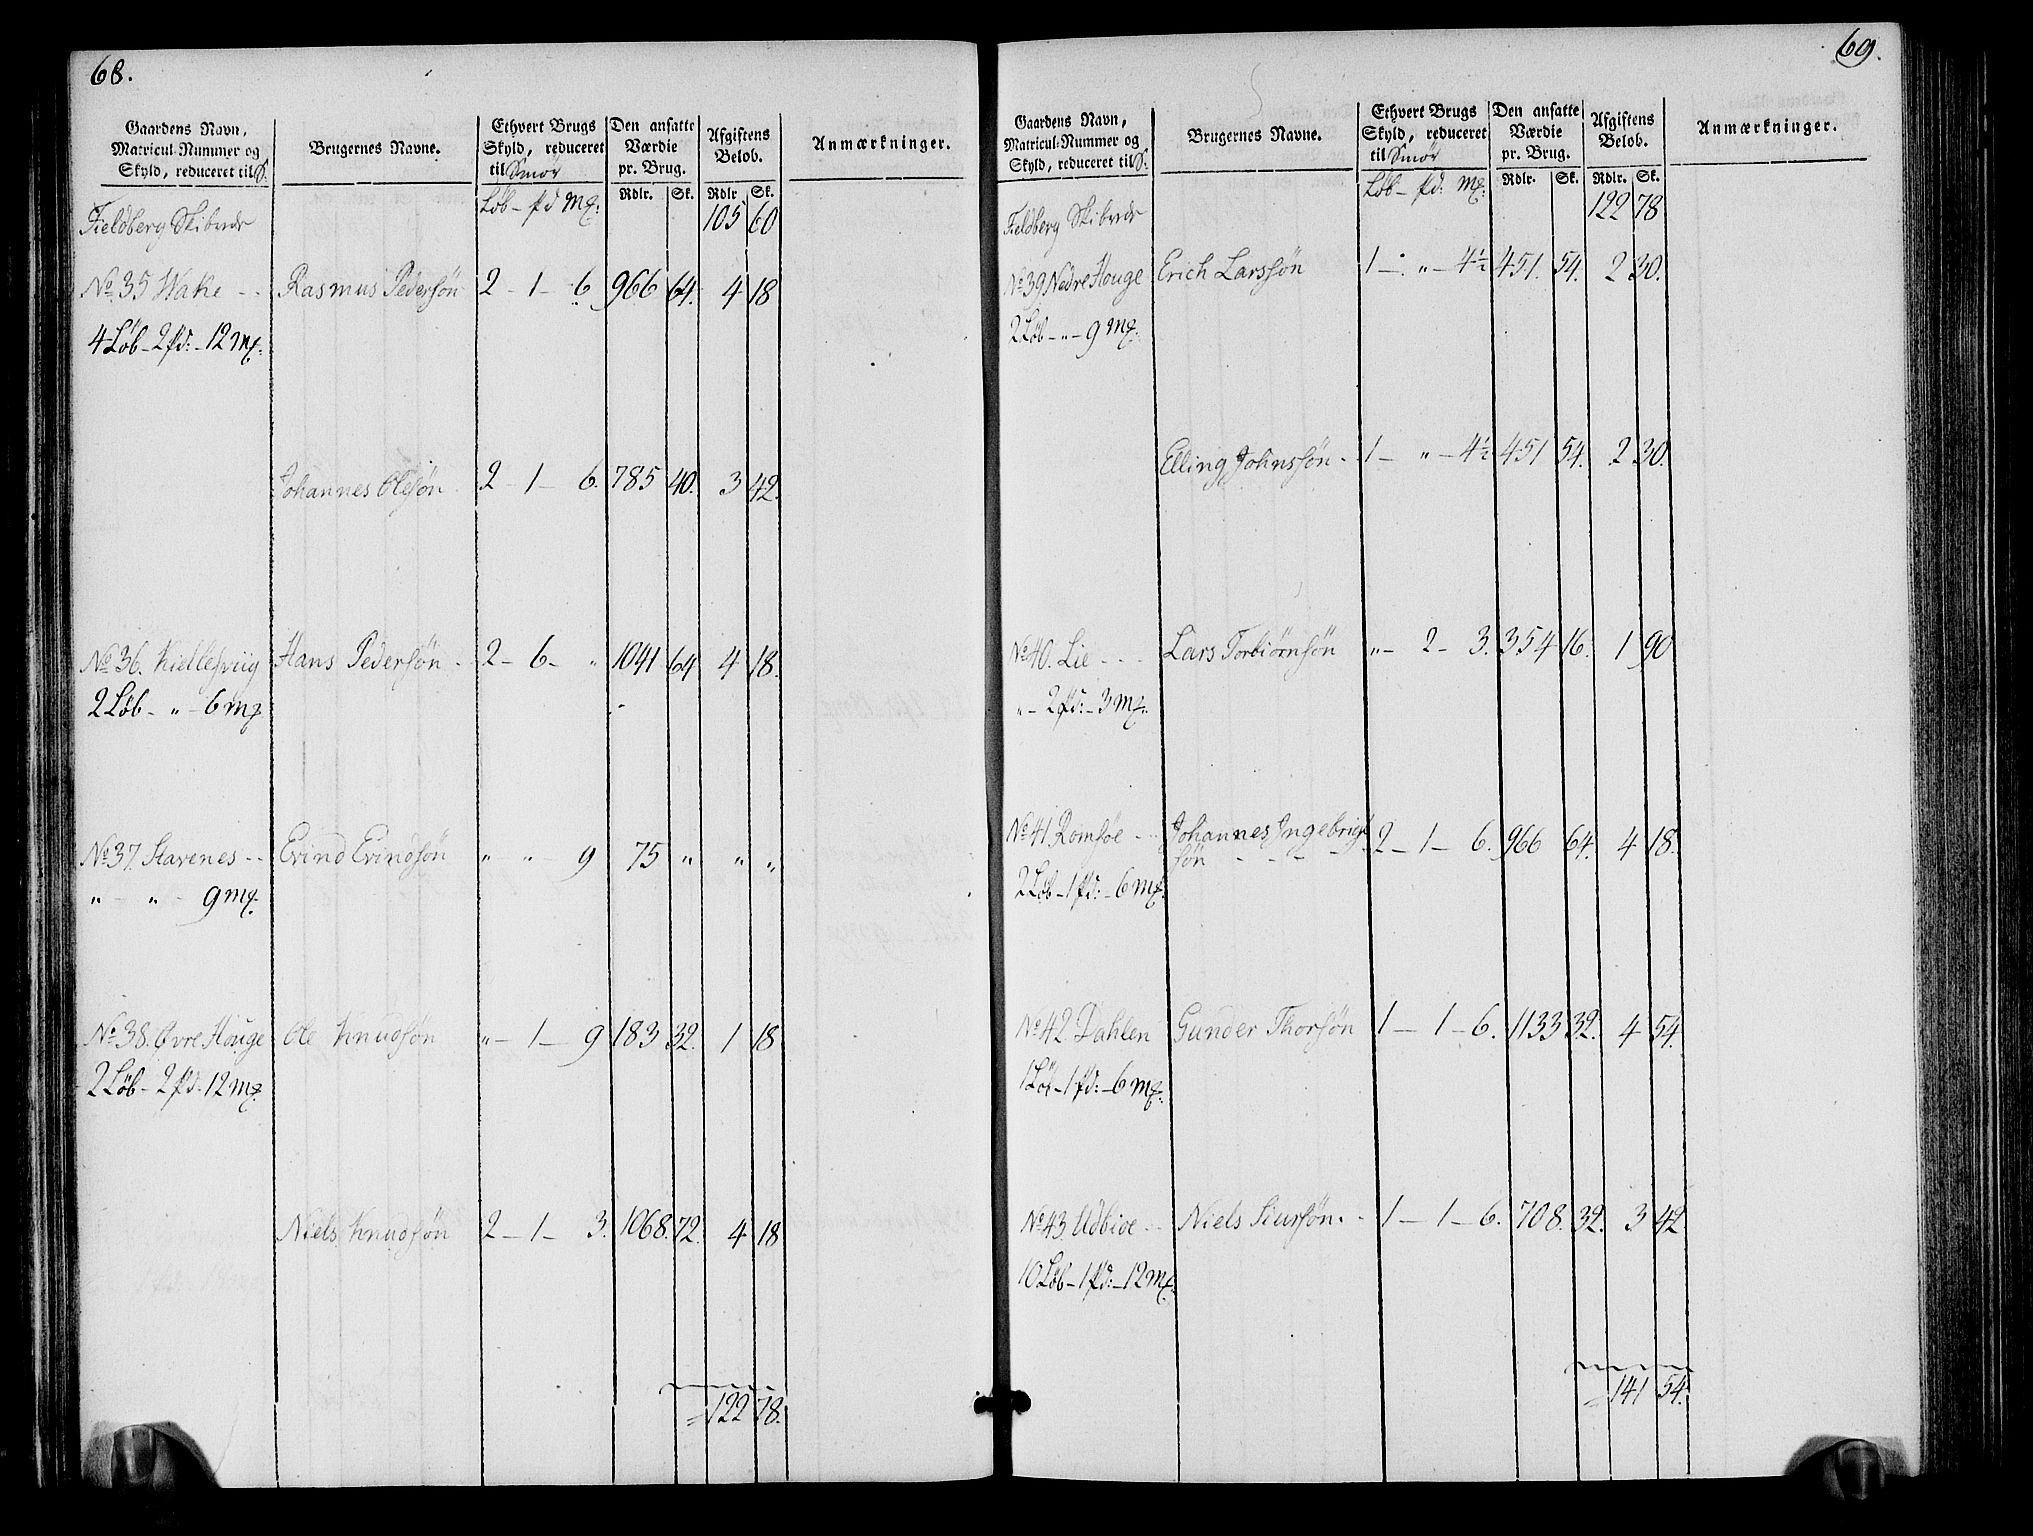 68.
Gaardens Navn, Matricul-Nummer og Skyld, reduceret til S. | Brugernes Navne. | Ethvert Brugs Skyld, reduceret til Smör | Den ansatte Værdie pr. Brug. | Afgiftens Belob. | Anmærkninger.
Løb – pd mƺ: | Rdlr. | Sk. | Rdlr. | Sk.
Fieldberg Skibrede | 105 | 60
No 35 Wake - - | Rasmus Pedersøn | 2 – 1 – 6 | 966 | 64. | 4 | 18
4 Løb – 2 pd: – 12 mƺ.
Johannes Olesøn | 2 – 1 – 6. | 785 | 40. | 3 | 42.
No 36. Kielleswiig | Hans Pedersøn - | 2 – 6 – " | 1041 | 64 | 4 | 18.
2 Løb – " – 6 mƺ
No 37. Stavenes - - | Evind Evindsøn | " " 9 | 75 | " | " | "
" – " – 9 mƺ.
No 38. Øvre Houge | Ole Knudsøn | " – 1 – 9 | 183 | 32. | 1 | 18
2 Løb – 2 pd. 12 mƺ.
Niels Knudsøn | 2 – 1 – 3. | 1068. | 72. | 4 | 18
= 122 | 78.
69.
Gaardens Navn, Matricul-Nummer og Skyld, reduceret til S. | Brugernes Navne. | Ethvert Brugs Skyld, reduceret til Smör | Den ansatte Værdie pr. Brug. | Afgiftens Belob. | Anmærkninger.
Løb – pd: mƺ: | Rdlr. | Sk. | Rdlr. | Sk.
Fieldberg Skibrede | 122 | 78
No 39 Nedre Houge | Erich Larssøn | 1 – " – 4½ | 451. | 54. | 2 | 30.
2 Løb – " – 9 mƺ.
Elling Johnssøn - | 1 – " – 4½ | 451 | 54. | 2 | 30.
No 40. Lie - - - | Lars Torbiörnsøn | " – 2 – 3. | 354 | 16. | 1 | 90
" – 2 pd: – 3 mƺ.
No 41 Romsøe - - | Johannes Ingebrigt
søn - - - - | 2 – 1 – 6. | 966 | 64. | 4 | 18.
2 Løb – 1 pd: – 6 mƺ.
No 42 Dahlen | Gunder Thorsøn | 1 – 1 – 6. | 1133 | 32. | 4 | 54.
1 Løb – 1 pd: – 6 mƺ.
No 43. Udbioe - - | Niels Siursøn. - | 1 – 1 – 6. | 708. | 32. | 3 | 42
10 Løb – 1 pd: – 12 mƺ.
= 141 | 54.